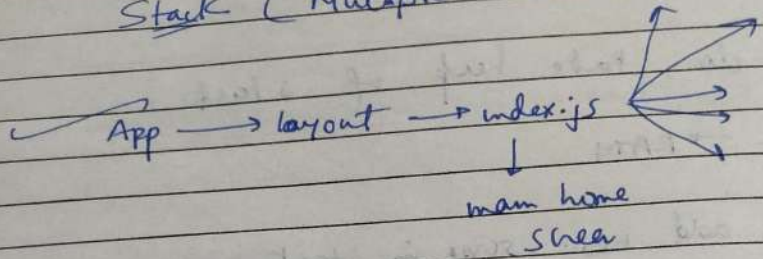 Stack (
App → layout → index.js
↓
main home
screen